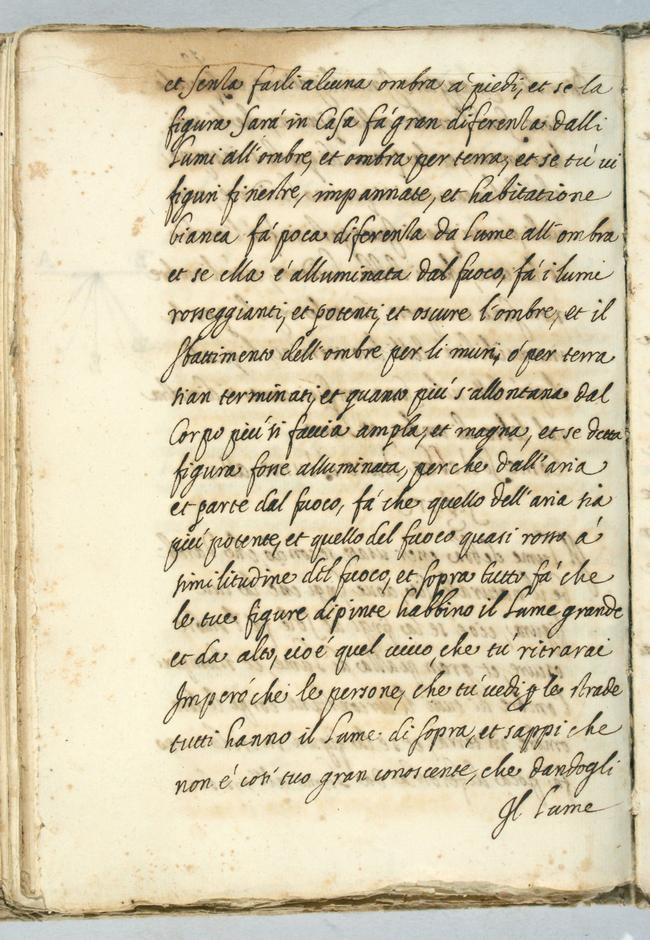 et senza farli alcuna ombra á piedi, et se la
figura sará in Casa fá gran diferenza dalli
Lumi all'ombre, et ombra per terra, et se tú ui
figuri finestre, impannate, et habitatione
bianca fá poca diferenza da lume all'ombra
et se ella é alluminata dal fuoco, fá i lumi
rosseggianti, et potenti, et oscure l'ombre, et il
sbattimento dell'ombre per li muri, ó per terra
sian terminati, et quanto piú s'allontana dal
Corpo piú si faccia ampla, et magna, et se detta
figura fosse alluminata, perche dall'aria
et parte dal fuoco, fá che quello dell'aria sia
piú potente, et quello del fuoco quasi rosso á
similitudine del fuoco, et sopra tutto fá che
le tue figure dipinte habbino il Lume grande
et da alto, cioé quel uiuo, che tú ritrarai
Imperó che le persone, che tú uedi p le strade
tutti hanno il Lume di sopra, et sappi che
non é cosi tuo gran conoscente, che dandogli
Il Lume